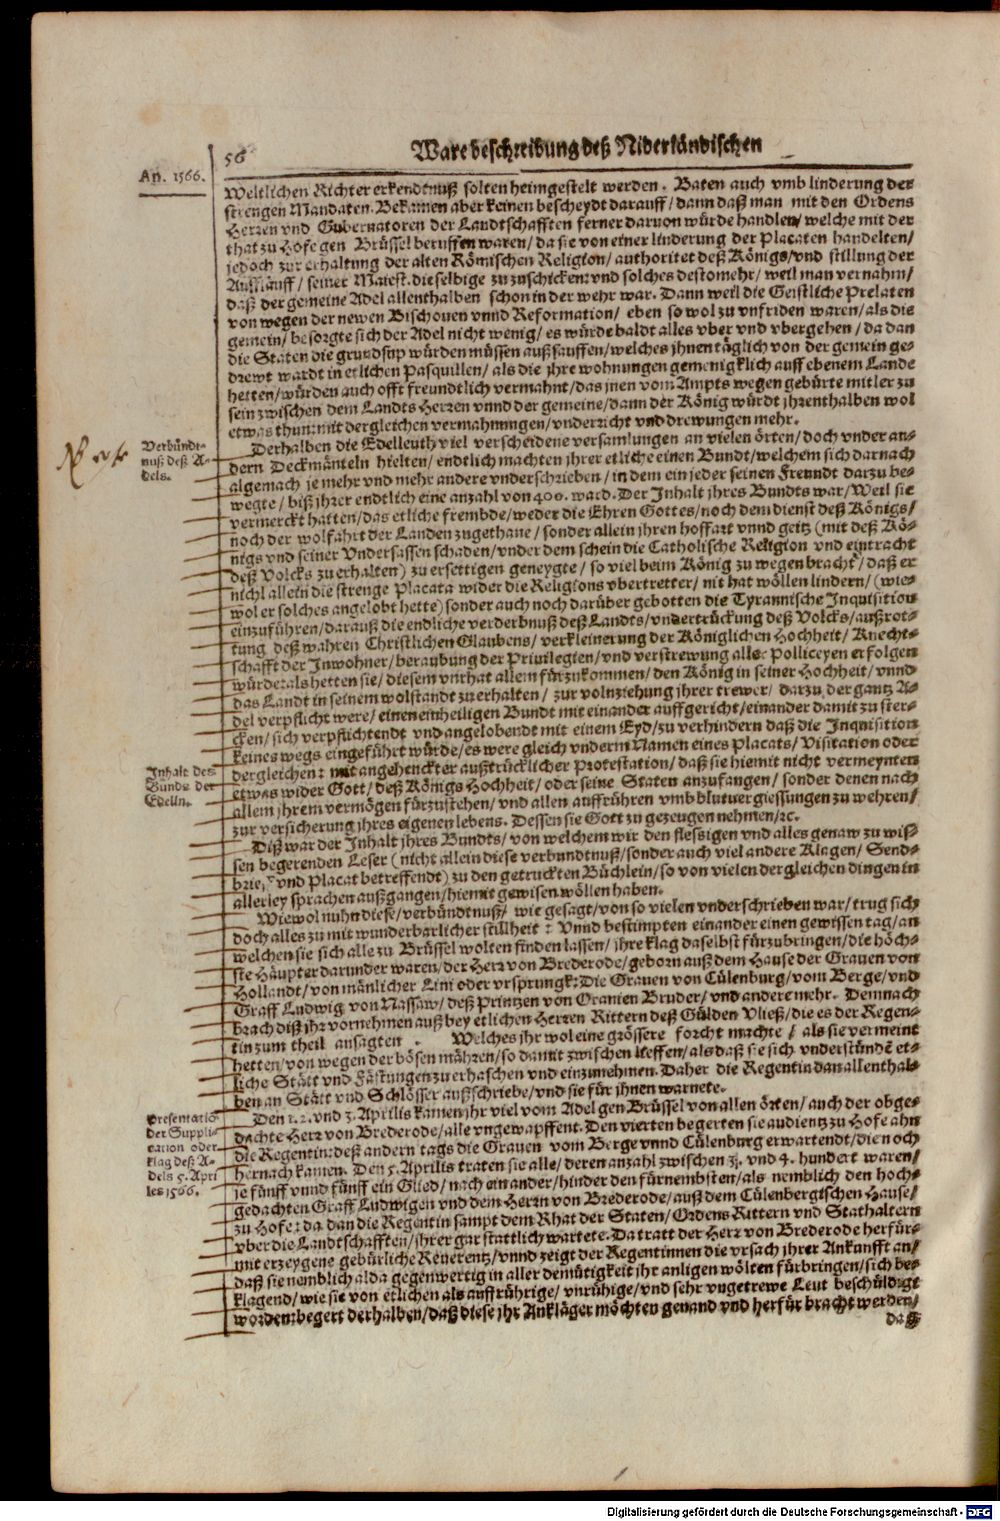 56
Ware beschreibung deß Niderländischen
An. 1566.
Weltlichen Richter erkendtnuß solten heimgestelt werden. Baten auch vmb linderung der
strengen Mandaten. Bekamen aber keinen bescheydt darauff/ dann daß man mit den Ordens
Herren vnd Gubernatoren der Landtschafften ferner daruon würde handlen/ welche mit der
that zu Hofe gen Brüssel beruffen waren/ da sie von einer linderung der Placaten handelten/
jedoch zur erhaltung der alten Römischen Religion/ authoritet deß Königs/ vnd stillung der
Aufflauff/ seiner Maiest. dieselbige zu zuschicken: vnd solches destomehr/ weil man vernahm/
daß der gemeine Adel allenthalben schon in der wehr war. Dann weil die Geistliche Prelaten
von wegen der newen Bischouen vnnd Reformation/ eben so wol zu vnfriden waren/ als die
gemein/ besorgte sich der Adel nicht wenig/ es würde baldt alles vber vnd vbergehen/ da dan
die Staten die grundsup würden müssen außsauffen/ welches jhnen täglich von der gemein ge-
drewt wardt in etlichen Pasquillen/ als die jhre wohnungen gemeinigklich auff ebenem Lande
hetten/ würden auch offt freundtlich vermahnt/ das jnen vom Ampts wegen gebürte mitler zu
sein zwischen dem Landts Herren vnnd der gemeine/ dann der König würdt jhrenthalben wol
etwas thun: mit dergleichen vermahnungen/ vnderricht vnd drewungen mehr.
Verbündt-
nuß deß A-
dels.
Derhalben die Edelleuth viel verscheidene versamlungen an vielen örten/ doch vnder an-
dern Deckmänteln hielten/ endtlich machten jhrer etliche einen Bundt/ welchem sich darnach
algemach je mehr vnd mehr andere vnderschrieben/ in dem ein jeder seinen Freundt darzu be-
wegte/ biß jhrer endtlich eine anzahl von 400. ward. Der Inhalt jhres Bundts war/ Weil sie
vermerckt hatten/ das etliche frembde/ weder die Ehren Gottes/ noch dem dienst deß Königs/
noch der wolfahrt der Landen zugethane/ sonder allein jhren hoffart vnnd geitz (mit deß Kö-
nigs vnd seiner Vndersassen schaden/ vnder dem schein die Catholische Religion vnd eintracht
deß Volcks zu erhalten) zu ersettigen geneygte/ so viel beim König zu wegen bracht/ daß er
nichl allein die strenge Placata wider die Religions vbertretter/ nit hat wöllen lindern/ (wie-
wol er solches angelobt hette) sonder auch noch darüber gebotten die Tyrannische Inquisition
einzuführen/ darauß die endliche verderbnuß deß Landts/ vndertrückung deß Volcks/ außrot-
tung deß wahren Christlichen Glaubens/ verkleinerung der Königlichen Hochheit/ Knecht-
schafft der Inwohner/ beraubung der Priuilegien/ vnd verstrewung aller Polliceyen erfolgen
würde: als hetten sie/ diesem vnrhat allein fürzukommen/ den König in seiner Hochheit/ vnnd
das Landt in seinem wolstandt zu erhalten/ zur volnziehung jhrer trewer/ darzu der gantz A-
del verpflicht were/ einen einheiligen Bundt mit einander auffgericht/ einander damit zu ster-
cken/ sich verpflichtendt vnd angelobendt mit einem Eyd/ zu verhindern daß die Inquisition
keines wegs eingeführt würde/ es were gleich vnderm Namen eines Placats/ Visitation oder
dergleichen: mit angehenckter außtrücklicher Protestation/ daß sie hiemit nicht vermeynten
etwas wider Gott/ deß Königs Hochheit/ oder seine Staten anzufangen/ sonder denen nach
allem jhrem vermögen fürzustehen/ vnd allen auffrühren vmb blutuergiessungen zu wehren/
zur versicherung jhres eigenen lebens. Dessen sie Gott zu gezeugen nehmen/ ꝛc.
Inhalt des
Bunds der
Edelln.
Diß war der Inhalt jhres Bundts/ von welchem wir den flessigen vnd alles genaw zu wis-
sen begerenden Leser (nicht allein diese verbundtnuß/ sonder auch viel andere Klagen/ Send-
brie, vnd Placat betreffendt) zu den getruckten Büchlein/ so von vielen dergleichen dingen in
allerley sprachen außgangen/ hiemit gewisen wöllen haben.
Wiewol nuhn diese/ verbündtnuß/ wie gesagt/ von so vielen vnderschrieben war/ trug sich
doch alles zu mit wunderbarlicher stillheit: Vnnd bestimpten einander einen gewissen tag/ an
welchen sie sich alle zu Brüssel wolten finden lassen/ jhre klag daselbst fürzubringen/ die höch-
ste Häupter darunder waren/ der Herr von Brederode/ geborn auß dem Hause der Grauen von
Hollandt/ von mänlicher Lini oder vrsprungk: Die Grauen von Cülenburg/ vom Berge/ vnd
Graff Ludwig von Nassaw/ deß Printzen von Oranien Bruder/ vnd andere mehr. Demnach
brach diß jhr vornehmen auß bey etlichen Herren Rittern deß Gülden Vließ/ die es der Regen-
tin zum theil ansagten. Welches jhr wol eine grössere forcht machte/ als sie vermeint
hetten/ von wegen der bösen mähren/ so damit zwischen lieffen/ als daß sie sich vnderstündē et-
liche Stätt vnd Fästungen zu erhaschen vnd einzunehmen. Daher die Regentin dan allenthal-
ben an Stätt vnd Schlösser außschriebe/ vnd sie für jhnen warnete.
Presentatio
der Suppli-
cation oder
klag deß A-
dels 5. Apri
les 1566.
Den 1. 2. vnd 3. Aprilis kamen jhr viel vom Adel gen Brüssel von allen örten/ auch der obge-
dachte Herr von Brederode/ alle vngewapffent. Den vierten begerten sie audientz zu Hofe ahn
die Regentin: deß andern tags die Grauen vom Berge vnnd Cülenburg erwartendt/ die noch
hernach kamen. Den 5. Aprilis traten sie alle/ deren anzahl zwischen 3. vnd 4. hundert waren/
je fünff vnnd fünff ein Glied/ nach einander/ hinder den fürnembsten/ als nemblich den hoch-
gedachten Graff Ludwigen vnd dem Herrn von Brederode/ auß dem Cülenbergischen Hause/
zu Hofe: da dan die Regentin sampt dem Rhat der Staten/ Ordens Rittern vnd Stathaltern
vber die Landtschafften/ jhrer gar stattlich wartete. Da tratt der Herr von Brederode herfür/
mit erzeygene gebürliche Reuerentz/ vnnd zeigt der Regentinnen die vrsach jhrer Ankunfft an/
daß sie nemblich alda gegenwertig in aller demütigkeit jhr anligen wölten fürbringen/ sich be-
klagend/ wie sie von etlichen als auffrührige/ vnrühige/ vnd sehr vngetrewe Leut beschüldigt
worden: begert derhalben/ daß diese jhr Ankläger möchten genand vnd herfür bracht werden/
daß
Digitalisierung gefördert durch die Deutsche Forschungsgemeinschaft - DFG